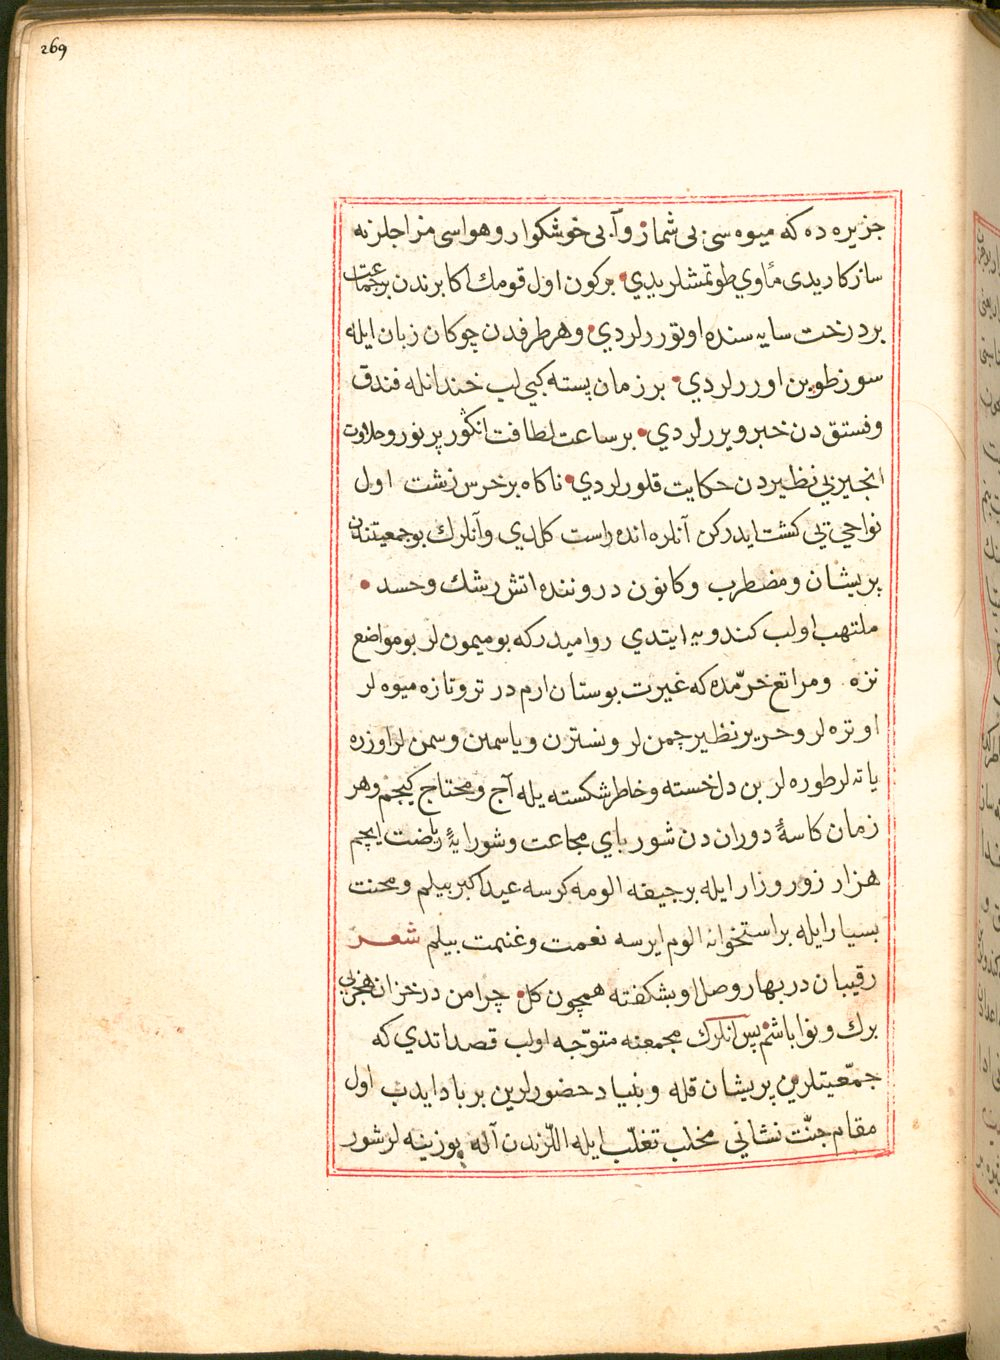 269
جزيره ده كه ميوه سى بى شمار و آبى خوشكوار و هواسى مزاجلرنه
سازكار ديدى مأوي طوتمشلريدي • بر كون اول قومك اكابرندن بر جماعت
بر درخت سايه سنده اوتوررلردي • و هر طرفدن چوكان زبان ايله
سوز طوپن اوررلردي • بر زمان پسته كبي لب خندانله فندق
و فستق دن خبر ويررلردي • بر ساعت لطافت انكور پر نور و حلاوت
انجير بي نظيردن حكايت قلورلردي • ناكاه بر خرس زشت اول
نواحي تي كشت ايدركن آنلره انده راست كلدي و آنلرك بو جمعيتندن
پريشان و مضطرب و كانون دروننده اتش رشك و حسد •
ملتهب اولب كندويه ايتدي روا ميدر كه بو ميمون لر بو مواضع
نزه و مراتع خرّمده كه غيرت بوستان ارم در تر و تازه ميوه لر
او تره لر و حرير نظير چمن لر و نسترن و ياسمين و سمن لر اوزره
ياته لر طوره لر بن دل خسته و خاطر شكسته يله آج و محتاج كيجم و هر
زمان كاسهٔ دوران دن شورباي مجاعت و شورايهٔ رياضت ايچم
هزار زور و زار ايله بر جيفه الومه كرسه عيد اكبر بيلم و محنت
بسيار ايله بر استخوانه الوم ايرسه نعمت و غنيمت بيلم شعر
رقيبان در بهار وصل او بشكفته همچون كل • چرا من در خزان هجر بي
برك و نوا باشم • پس انلرك مجمعنه متوّجه اولب قصد اتدي كه
جمّعيتلرين پريشان قله و بنياد حضورلرين برباد ايدب اول
مقام جنّت نشاني مخلب تغلّب ايله اللرندن آله پوزينه لر شور